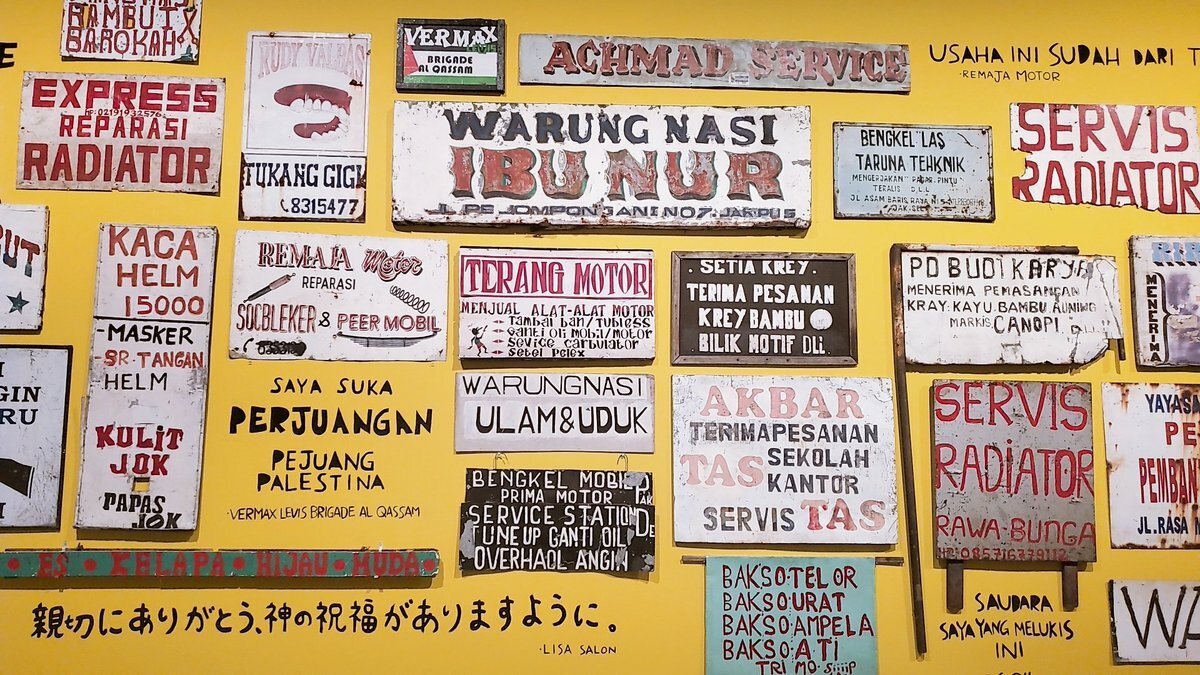 RAMBUT
BAROKAH
EXPRESS
REPARASI
RADIATOR
RUDY VALBAS
TUKANG GIGI
8315477
VERMAX
LEVIS
BRIGADE
AL QASSAM
ACHMAD SERVICE
USAHA INI SUDAH DARI T
·REMAJA MOTOR
WARUNG NASI
IBU NUR
BENGKEL LAS
TARUNA TEHKNIK
MENGERJAKAN PAGAR PINTU
TERALIS D.L.L
SERVIS
RADIATOR
KACA
HELM
15000
-MASKER
SR·TANGAN
HELM
KULIT
JOK
PAPAS
JOK
REMAJA Motor
REPARASI
SOCBLEKER & PEER MOBIL
TERANG MOTOR
MENJUAL ALAT-ALAT MOTOR
Tambal ban/Tubless
Ganti oli mobil/motor
Sevice carbulator
Setel Pelex
. SETIA KREY .
TERIMA PESANAN
KREY BAMBU
BILIK MOTIF DLL.
PD BUDI KARYA
MENERIMA PEMASANGAN
KRAY: KAYU. BAMBU. AUNING
MARKIS. CANOPI. DLL
MENERIMA
GIN
RU
SAYA SUKA
PERJUANGAN
PEJUANG
PALESTINA
·VERMAX LEVIS BRIGADE AL QASSAM
WARUNGNASI
ULAM&UDUK
BENGKEL MOBIL
PRIMA MOTOR
SERVICE STATION
TUNE UP GANTI OIL
OVERHAOL ANGIN
AKBAR
TERIMAPESANAN
TAS SEKOLAH
KANTOR
SERVIS TAS
SERVIS
RADIATOR
RAWA·BUNGA
HP:085716779112
YAYASA
PE
PEMBAN
JL.RASA
ES • KELAPA • HIJAU • MUDA •
親切にありがとう、神の祝福がありますように。
·LISA SALON
BAKSO:TELOR
BAKSO:URAT
BAKSO:AMPELA
BAKSO:ATI
TRI MO·Siiiip
SAUDARA
SAYA YANG MELUKIS
INI
WA